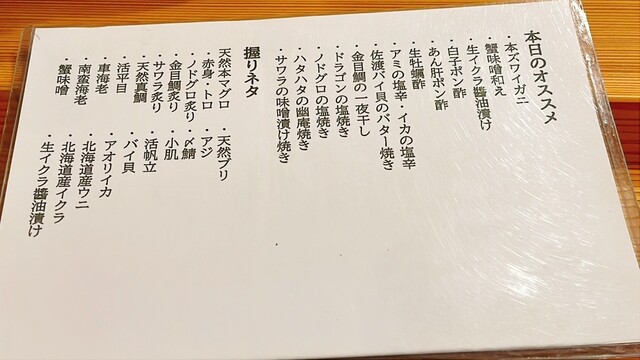 本日のオススメ
・本ズワイガニ
・蟹味噌和え
・生イクラ醬油漬け
・白子ポン酢
・あん肝ポン酢
・生牡蠣酢
・アミの塩辛・イカの塩辛
・佐渡バイ貝のバター焼き
・金目鯛の一夜干し
・ドラゴンの塩焼き
・ノドグロの塩焼き
・ハタハタの幽庵焼き
・サワラの味噌漬け焼き
握りネタ
天然本マグロ ・天然ブリ
・赤身・トロ ・アジ
・ノドグロ炙り ・〆鯖
・金目鯛炙り ・小肌
・サワラ炙り ・活帆立
・天然真鯛 ・バイ貝
・活平目 ・アオリイカ
・車海老 ・北海道産ウニ
・南蛮海老 ・北海道産イクラ
・蟹味噌 生イクラ醬油漬け